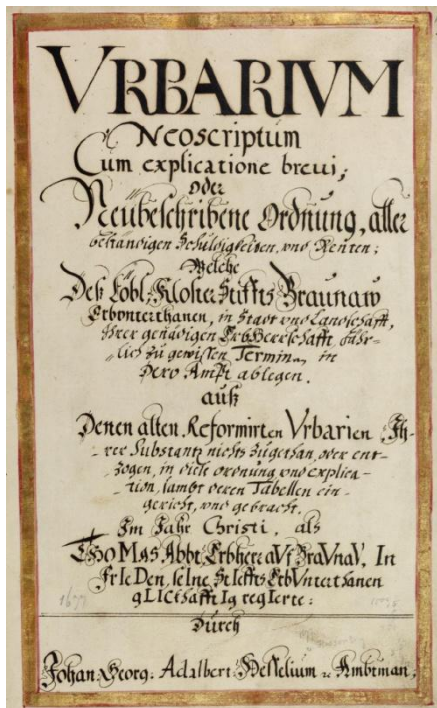 VRBARIVM
Neoscriptum
Cum explicatione breui;
oder
Neübeschribene Ordnüng, aller
beständigen Schüldigkeiten, vnd Renten;
Welche
Deß Löbl: Kloster Stiffts Braunaw
Erbvnterthanen, in Stadt vnd Landschafft,
Ihrer genädigen ErbHerrschafft Jähr-
lich zu gewissen Terminen, in
Dero Ampt ablegen.
auß
Denen alten Reformirten Vrbarien, Ih-
rer Substantz nichts zugethan, oder ent-
zogen, in diese ordnung vnd explica-
tion, sambt deren Tabellen ein-
gericht, vnd gebracht.
Im Jahr Christi, als
ThoMas Abbt, Erbherr aVf BraVnaV, In
FrIeDen, seIne StIffts ErbVnterthanen
gLICkhafftIg regIerte:
1677
Dürch
Johan: Georg: Adalbert: Ambtman;